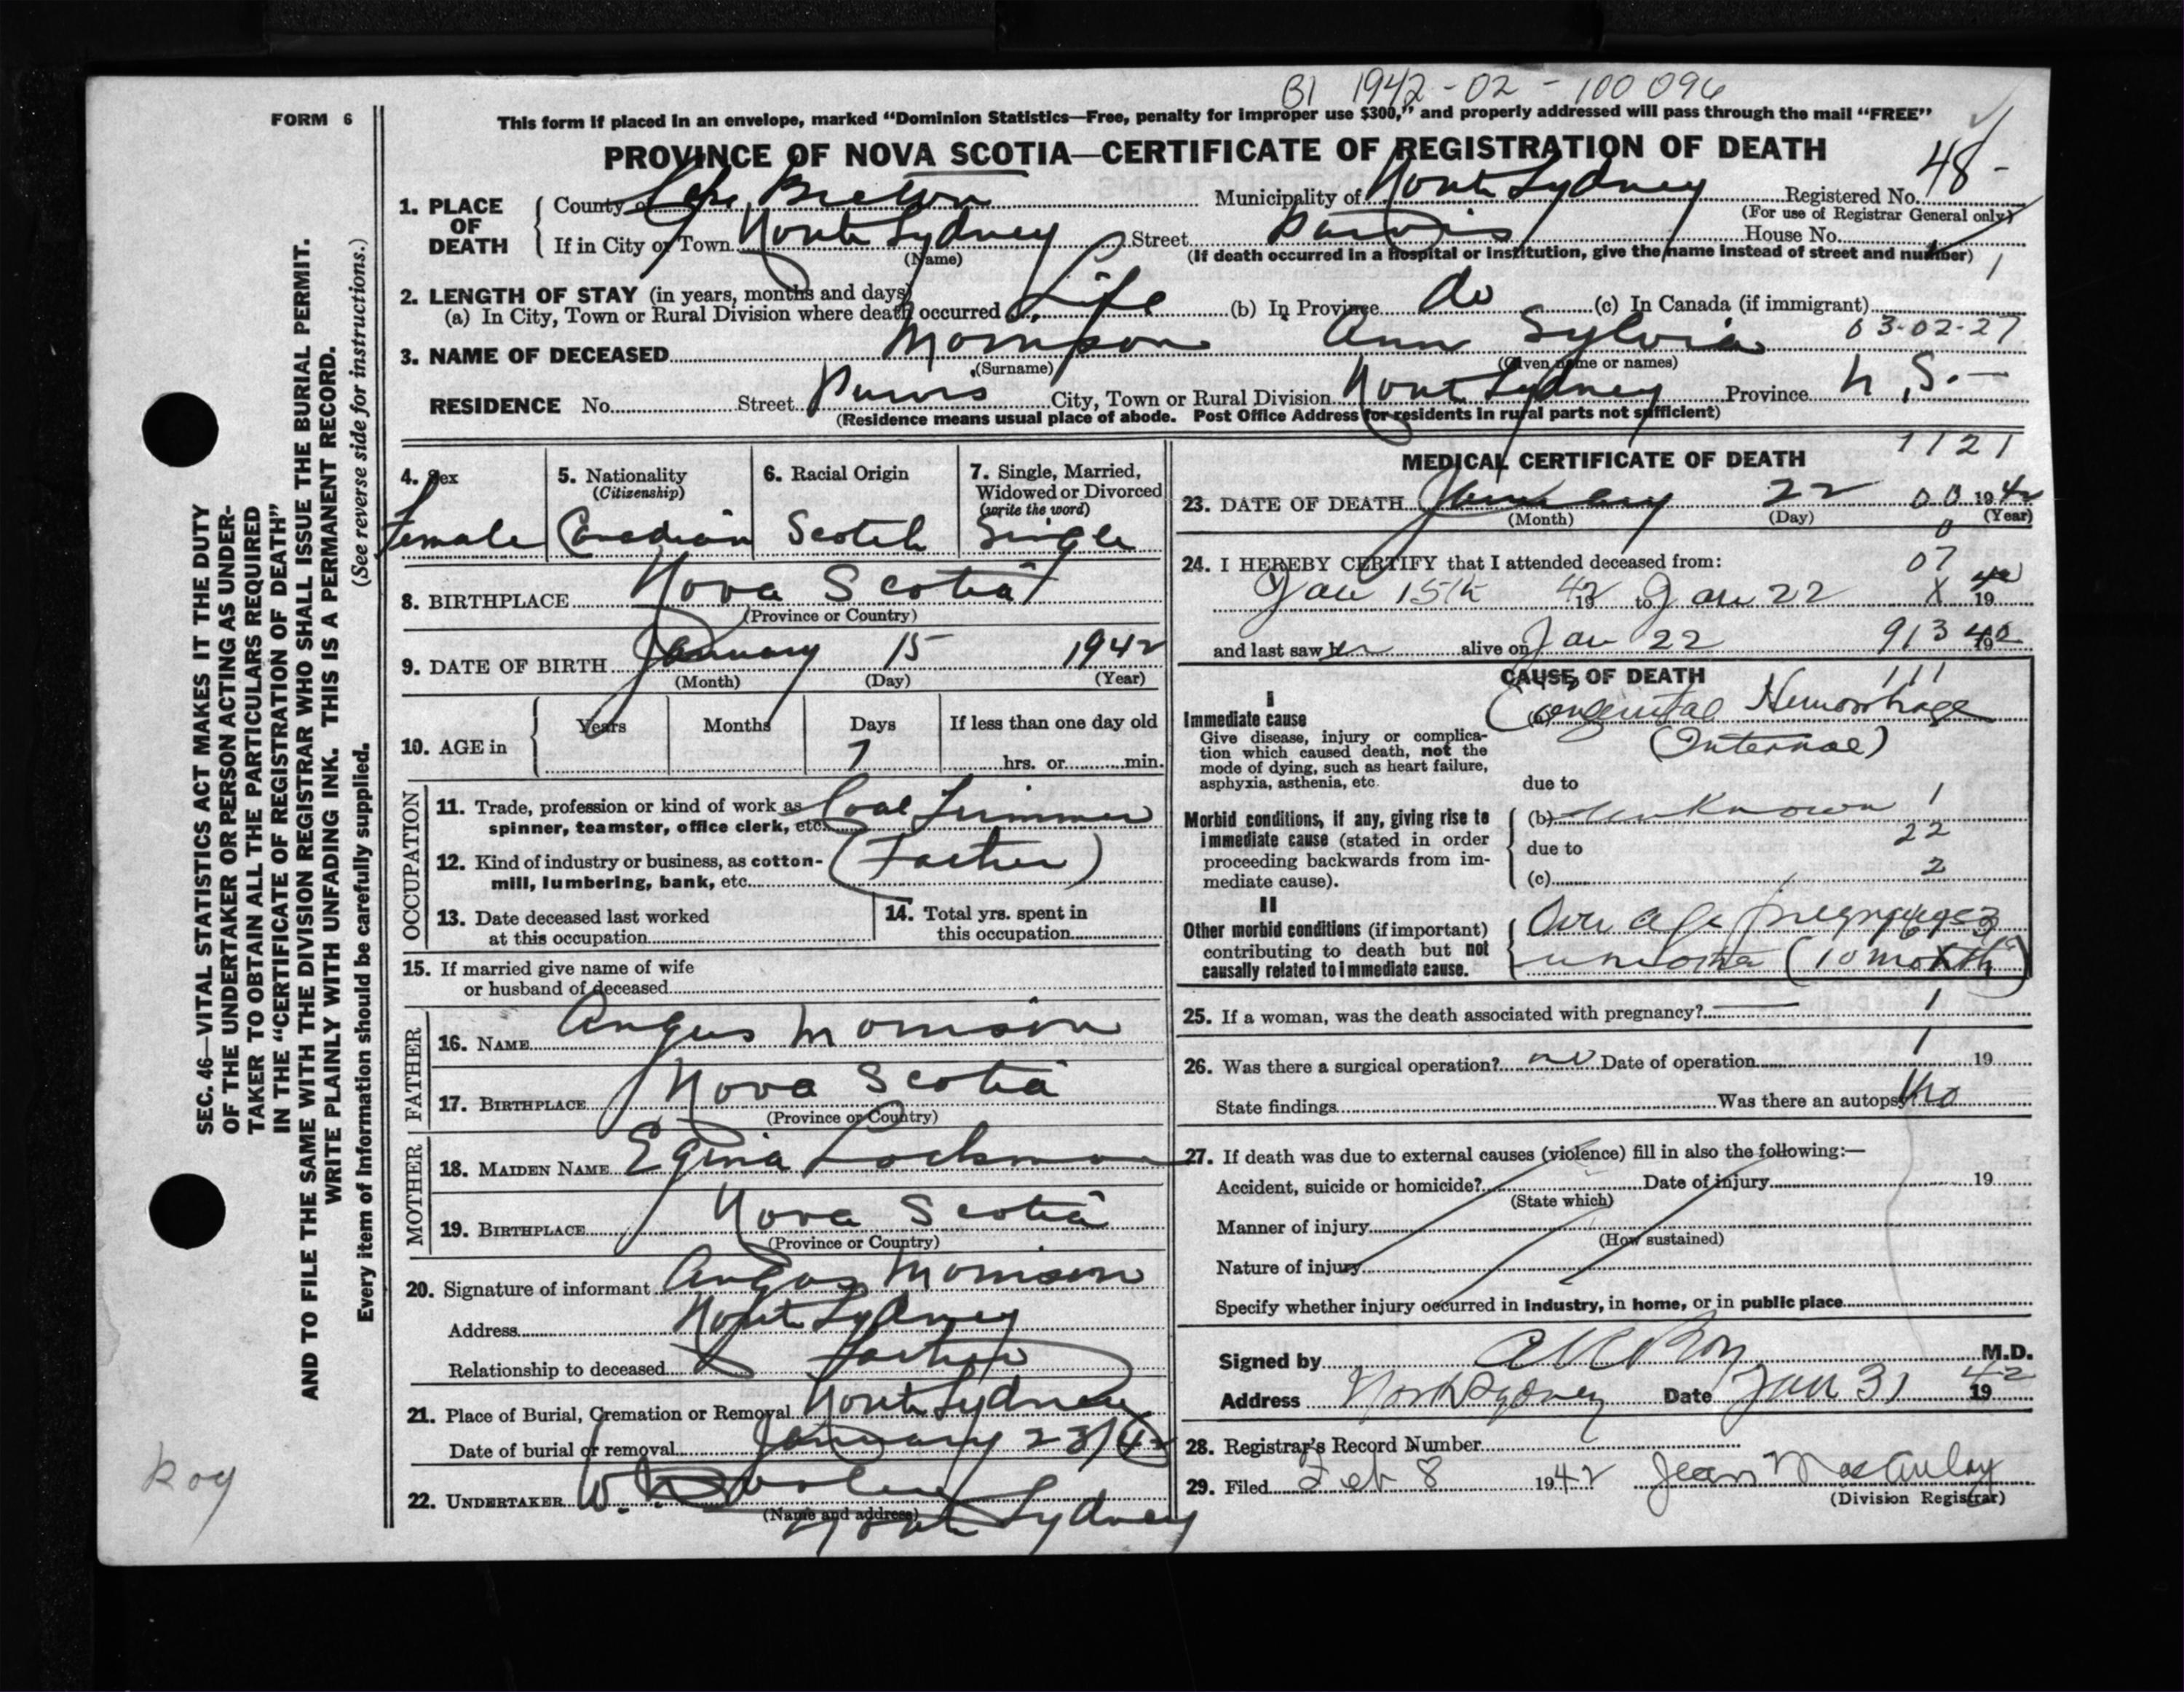 BI 1942-02-100096
FORM 6
This form if placed in an envelope, marked "Dominion Statistics—Free, penalty for improper use $300," and properly addressed will pass through the mail "FREE"
PROVINCE OF NOVA SCOTIA—CERTIFICATE OF REGISTRATION OF DEATH
48-
1. PLACE OF DEATH
County of Cape Breton Municipality of North Sydney Registered No.
(For use of Registrar General only)
If in City or Town North Sydney Street House No.
(Name) (If death occurred in a hospital or institution, give the name instead of street and number)
1
2. LENGTH OF STAY (in years, months and days)
(a) In City, Town or Rural Division where death occurred Life (b) In Province do (c) In Canada (if immigrant)
03-02-27
3. NAME OF DECEASED Morrison Ann Sylvia
(Surname) (Given name or names)
RESIDENCE No. Street Purves City, Town or Rural Division North Sydney Province N.S.-
(Residence means usual place of abode. Post Office Address for residents in rural parts not sufficient)
4. Sex
Female
5. Nationality
(Citizenship)
Canadian
6. Racial Origin
Scotch
7. Single, Married,
Widowed or Divorced
(write the word)
Single
8. BIRTHPLACE Nova Scotia
(Province or Country)
9. DATE OF BIRTH January 15 1942
(Month) (Day) (Year)
10. AGE in Years Months Days If less than one day old
7 hrs. or min.
OCCUPATION
11. Trade, profession or kind of work as Coal Trimmer
spinner, teamster, office clerk, etc.
12. Kind of industry or business, as cotton- (Father)
mill, lumbering, bank, etc.
13. Date deceased last worked
at this occupation
14. Total yrs. spent in
this occupation
15. If married give name of wife
or husband of deceased
FATHER
16. NAME Angus Morrison
17. BIRTHPLACE Nova Scotia
(Province or Country)
MOTHER
18. MAIDEN NAME
19. BIRTHPLACE Nova Scotia
(Province or Country)
20. Signature of informant Angus Morrison
Address North Sydney
Relationship to deceased Father
21. Place of Burial, Cremation or Removal North Sydney
Date of burial or removal January 23/42
22. UNDERTAKER W.
(Name and address)
North Sydney
1121
MEDICAL CERTIFICATE OF DEATH
23. DATE OF DEATH January 22 00 1942
(Month) (Day) (Year)
0
24. I HEREBY CERTIFY that I attended deceased from:
07
Jan 15th 1942 to Jan 22 X 1942
and last saw her alive on Jan 22 913 1942
CAUSE OF DEATH
111
I
Immediate cause
Give disease, injury or complica-
tion which caused death, not the
mode of dying, such as heart failure,
asphyxia, asthenia, etc.
(a) Congenital Hemorrhage
(Internal)
due to
Morbid conditions, if any, giving rise to
immediate cause (stated in order
proceeding backwards from im-
mediate cause).
(b) unknown 1
due to 22
(c) 2
II
Other morbid conditions (if important)
contributing to death but not
causally related to immediate cause.
Over age
(10 month)
25. If a woman, was the death associated with pregnancy? — 1
1
26. Was there a surgical operation? no Date of operation 19
State findings Was there an autopsy? No
27. If death was due to external causes (violence) fill in also the following:—
Accident, suicide or homicide? Date of injury 19
(State which)
Manner of injury
(How sustained)
Nature of injury
Specify whether injury occurred in Industry, in home, or in public place
Signed by M.D.
Address North Sydney Date Jan 31 1942
28. Registrar's Record Number
29. Filed Feb 8 1942 Jean MacAulay
(Division Registrar)
SEC. 46—VITAL STATISTICS ACT MAKES IT THE DUTY
OF THE UNDERTAKER OR PERSON ACTING AS UNDER-
TAKER TO OBTAIN ALL THE PARTICULARS REQUIRED
IN THE "CERTIFICATE OF REGISTRATION OF DEATH"
AND TO FILE THE SAME WITH THE DIVISION REGISTRAR WHO SHALL ISSUE THE BURIAL PERMIT.
WRITE PLAINLY WITH UNFADING INK. THIS IS A PERMANENT RECORD.
Every item of Information should be carefully supplied. (See reverse side for instructions.)
Roy